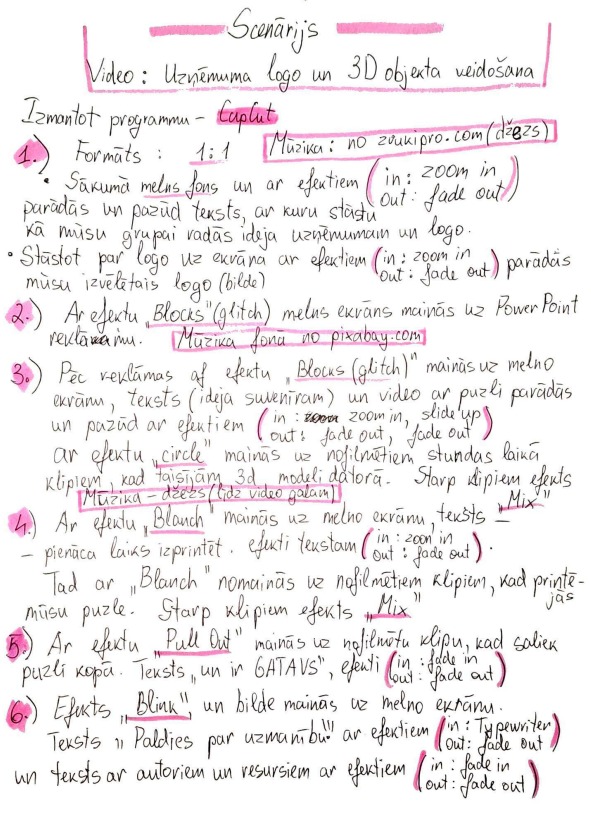 Scenārijs
Video : Uzņēmuma logo un 3D objekta veidošana
Izmantot programmu – CapCut
1.) Formāts : 1:1 Mūzika : no zvukipro.com (džezs)
• Sākumā melns fons un ar efektiem (in : zoom in
out : fade out)
parādās un pazūd teksts, ar kuru stāstu
kā mūsu grupai radās ideja uzņēmumam un logo.
• Stāstot par logo uz ekrāna ar efektiem (in : zoom in
out : fade out) parādās
mūsu izvēlētais logo (bilde)
2.) Ar efektu „Blocks" (glitch) melns ekrāns mainās uz PowerPoint
reklāmu. Mūzika fonā no pixabay.com
3.) Pēc reklāmas af efektu „Blocks (glitch)" mainās uz melno
ekrānu, teksts (ideja suvenīram) un video ar puzli parādās
un pazūd ar efektiem (in : zoom in, slide up
out : fade out, fade out)
ar efektu „circle" mainās uz nofilmētiem stundas laikā
klipiem, kad taisījām 3d modeli datorā. Starp klipiem efekts
„Mix"
Mūzika – džezs (līdz video galam)
4.) Ar efektu „Blanch" mainās uz melno ekrānu, teksts –
– pienāca laiks izprintēt. efekti tekstam (in : zoom in
out : fade out).
Tad ar „Blanch" nomainās uz nofilmētiem klipiem, kad printē-
jās
mūsu puzle. Starp klipiem efekts „Mix"
5.) Ar efektu „Pull Out" mainās uz nofilmētu klipu, kad saliek
puzli kopā. Teksts „un ir GATAVS", efekti (in : fade in
out : fade out)
6.) Efekts „Blink", un bilde mainās uz melno ekrānu.
Teksts „Paldies par uzmanību!" ar efektiem (in : Typewriter
out : fade out)
un teksts ar autoriem un resursiem ar efektiem (in : fade in
out : fade out)